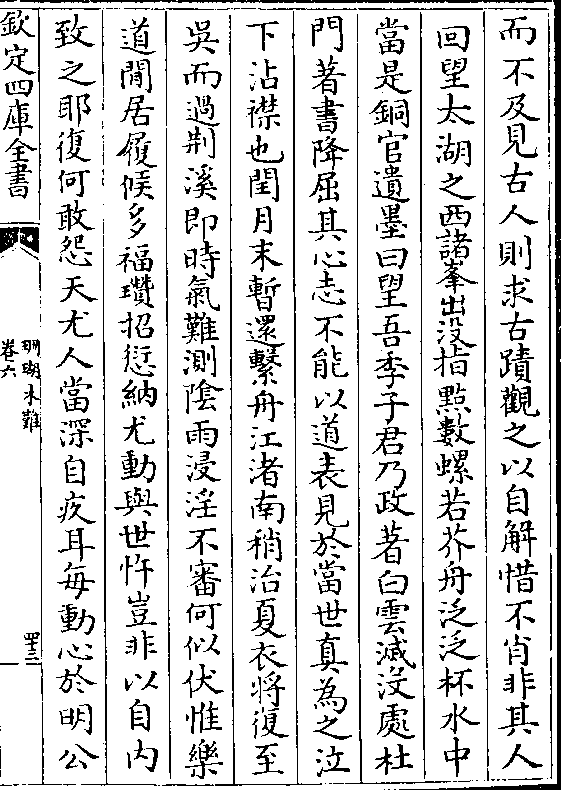 而不及見古人則求古蹟觀之以自解惜不肖非其人
回望太湖之西諸峯出没指點數螺若芥舟泛泛杯水中
當是銅官遺墨曰望吾季子君乃政著白雲滅没處杜
門著書降屈其心志不能以道表見於當世真為之泣
下沾襟也閏月末暫還繫舟江渚南稍治夏衣將復至
吳而過荆溪即時氣難測陰雨浸淫不審何似伏惟樂
道閒居履候多福瓚招愆納尤動與世忤豈非以自内
致之耶復何敢怨天尤人當深自疚耳每動心於明公
欽定四庫全書
珊瑚木難
卷六
四十三